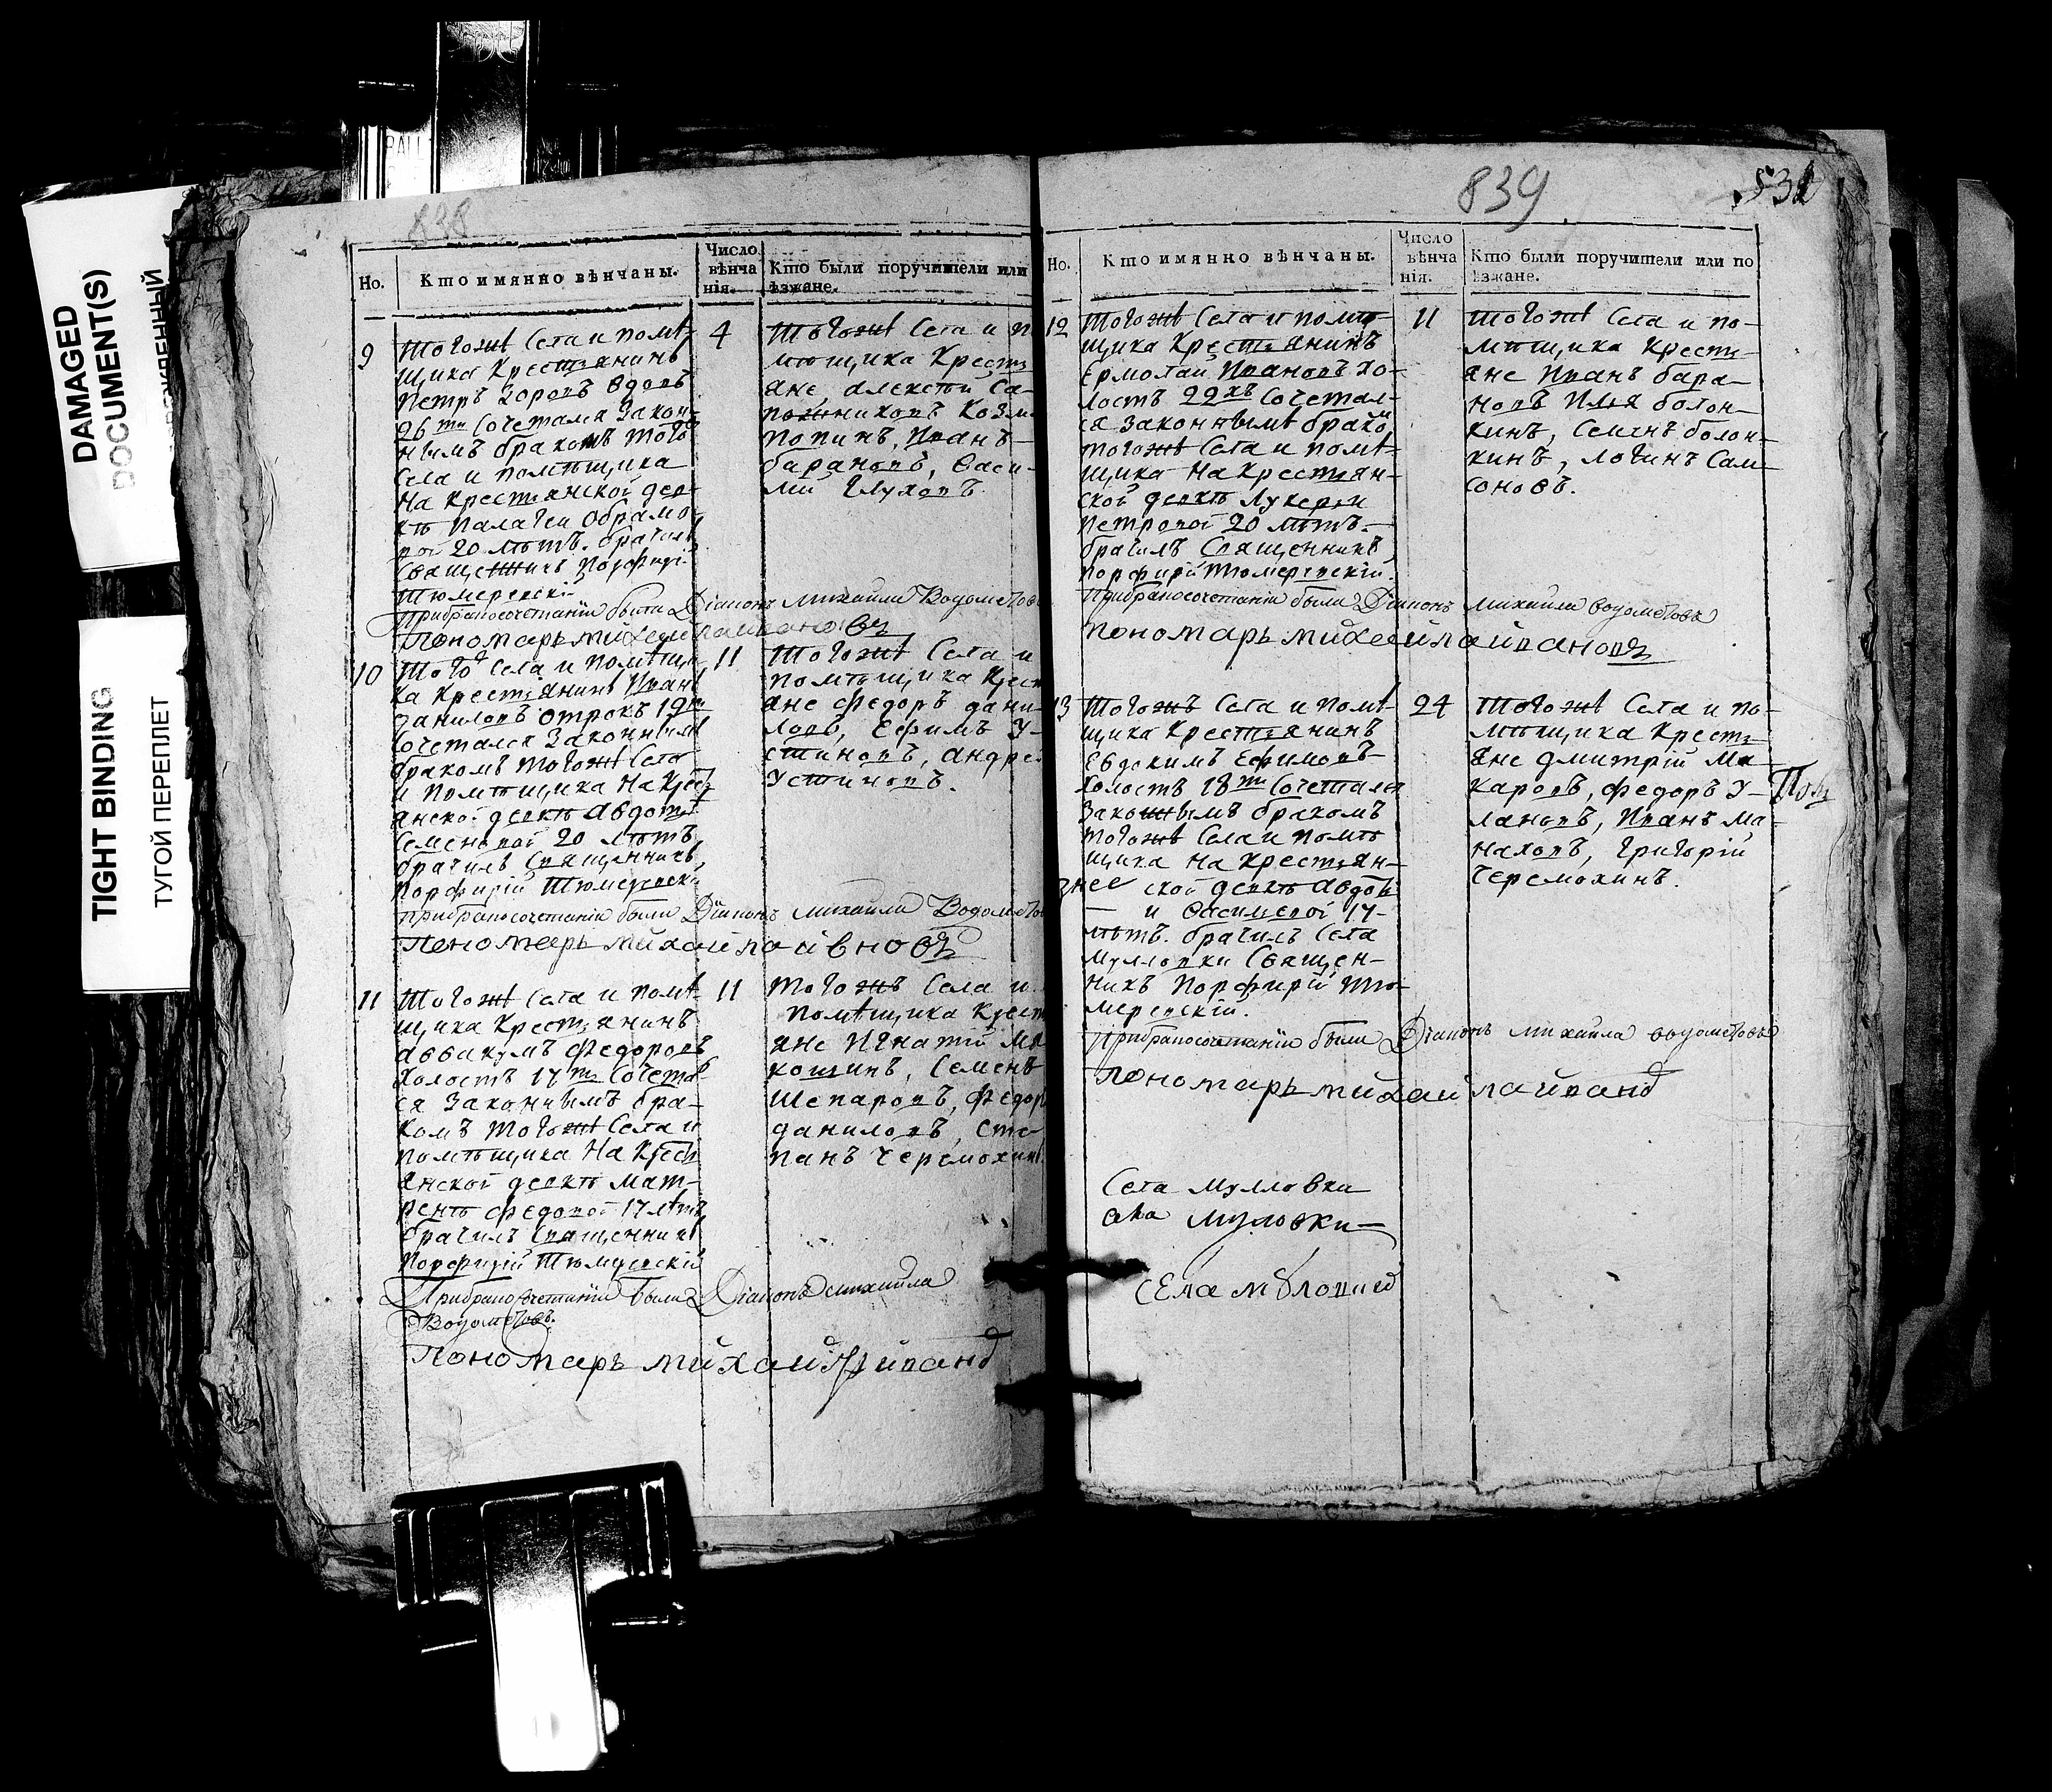 DAMAGED
DOCUMENT(S)
TIGHT BINDING
ТУГОЙ ПЕРЕПЛЕТ
838
Но.
Кто имянно вѣнчаны.
Число вѣнча нія.
Кто были поручители или
ѣзжане.
9
тогожѣ Села и помѣ-
щика Крестянинъ
Петръ Вдовъ
26 ти Сочетался Закон-
нымъ бракомъ того
Села и помѣщика
На Крестянской дев-
кѣ Палагеи
вой 20 лѣтъ. брачилъ
Священникъ Порфирій
Тюмеревскій
4
тогожѣ Села и п
мѣщика Крестя
яне, алексѣй Са-
пожниковъ Козм
Попинъ, Иванъ
барановъ, Васи-
лій Глуховъ.
При бракосочетаніи были Діаконъ Михайла Водолеѣовъ
Пономарь михаила ивановъ
10
того Села и помѣщи-
ка Крестянинъ Иванъ
Даниловъ отрокъ 19 ти
Сочетался Законнымъ
бракомъ тогожѣ Села
и помѣщика На Крест
янской девкѣ Авдотѣ
Семеновой 20 лѣтъ
брачилъ Священникъ
Порфирій Тюмеревскі
11
тогожѣ Села и
помѣщика Крест
яне Федоръ дани-
ловъ, Ефимъ У-
стиновъ, андре
Устиновъ.
При бракосочетаніи были Діаконъ михайла
Пономарь михайла ивновъ
11
тогожѣ Села и помѣ-
щика Крестянинъ
аввакумъ Федоровъ
холостъ 17 ти Сочетал
ся Законнымъ бра-
комъ тогожѣ Села и
помѣщика На Крест
янской девкѣ мат-
ренѣ Федовой 17 лѣтъ
брачилъ Священникъ
Порфирій Тюмеревскій
11
тогожъ Села и
помѣщика Крест
яне Игнатій Ма
кошинъ, Семенъ
Шепаровъ, Федор
даниловъ, Сте-
панъ Черемохинъ
При бракосочетаніи были Діаконъ михайла
Пономарь михайла иванов
839
532
Но.
Кто имянно вѣнчаны.
Число вѣнча нія.
Кто были поручители или по
ѣзжане.
12
тогожѣ Села и помѣ-
щика Крестянинъ
Ермолай Ивановъ хо-
лостъ 22 хъ Сочетал-
ся законнымъ брако
тогожѣ Села и помѣ-
щика На крестян-
ской девкѣ Лукерѣи
Петровой 20 лѣтъ.
брачилъ Священникъ
Порфирій Тюмеревскій.
11
тогожѣ Села и по-
мѣщика Крестя-
яне Иванъ бара-
новъ Илья болон-
кинъ, Семенъ болон-
кинъ, логинъ Сам-
соновъ.
При бракосочетаніи были Діаконъ михайла
пономарь михайла ивановъ
13
тогожъ Села и помѣ-
щика Крестянинъ
Евдокимъ Ефимовъ
холостъ 18 ти Сочетался
Законнымъ бракомъ
тогожѣ Села и помѣ
щика на крестян-
ской девкѣ Авдоѣ
и Васильевой 17-
лѣтъ. брачилъ Села
Мулловки Священ-
никъ Порфирій Тю-
меревскій.
24
тогожѣ Села и по-
мѣщика Крестя-
яне дмитрій Ма-
каровъ, Федоръ У-
лановъ, Иванъ Ма-
наховъ, Григорій
Черемохинъ.
При бракосочетаніи были Діаконъ михайла
пономарь михайла иванов
Села Мулловка
Мулловки
Села